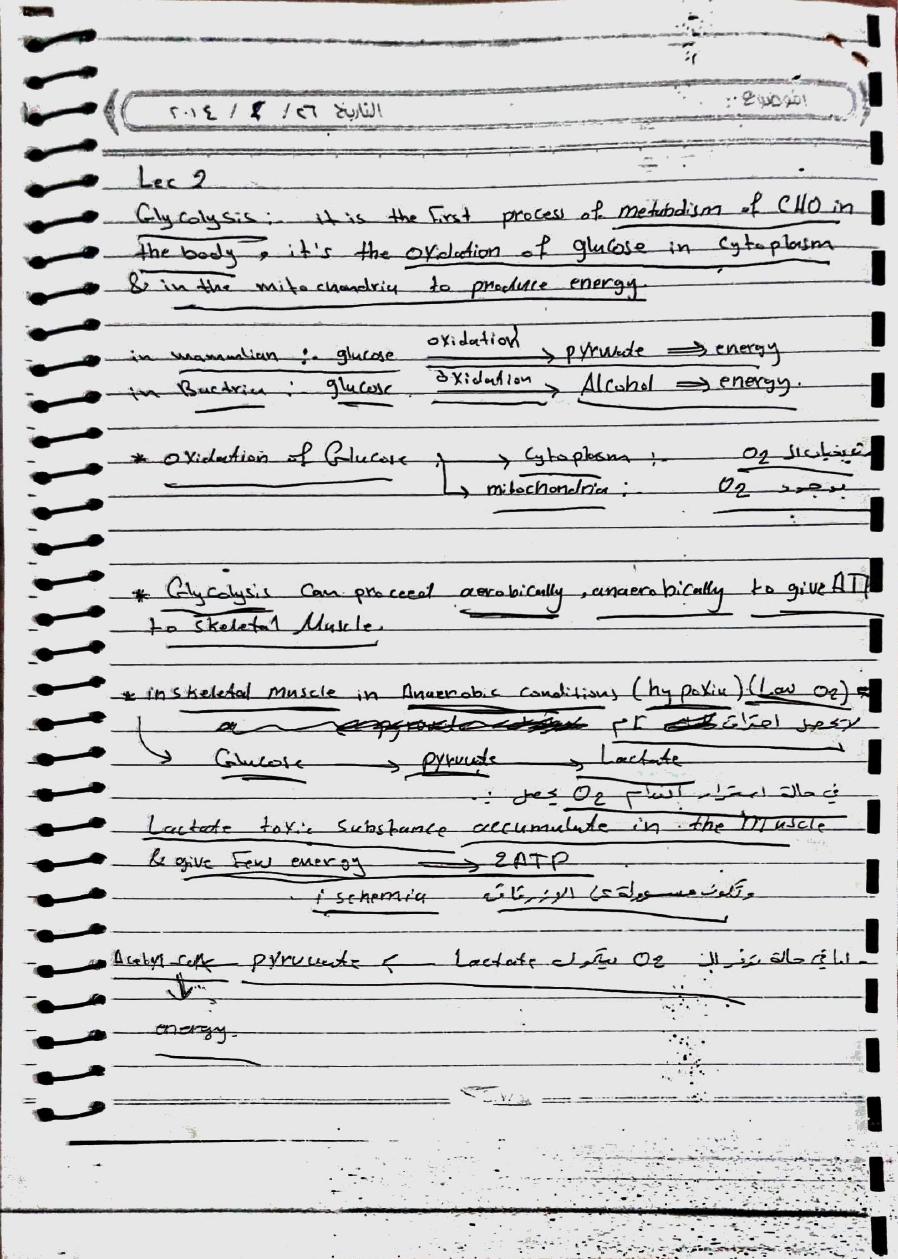 الموضوع :
التاريخ ٢٦ / ٤ / ٢٠١٤
Lec 2
Glycolysis :- it is the First process of metabolism of CHO in
the body, it's the oxidation of glucose in cytoplasm
& in the mitochondria to produce energy.
in mammalian :- glucose oxidation → pyruvate ⇒ energy
in Bactria : glucose oxidation → Alcohol ⇒ energy.
* oxidation of Glucose : → Cytoplasm :- O2
→ mitochondria :- بوجود O2
* Glycolysis Can proceed aerobically, anaerobically to give ATP
to skeletal Muscle.
* in skeletal muscle in Anaerobic conditions (hypoxia) (Low O2) =
لا يحصل احتراق تام
→ Glucose → pyruvate → Lactate
في حالة استمرار انعدام O2 يحصل :-
Lactate toxic substance accumulate in the Muscle
& give Few energy → 2ATP
وتكون مسؤولة عن الازرقاق ischemia
- اما في حالة توفر ال O2 سيتحول Lactate > pyruvate Acetyl-CoA
⇓
energy.